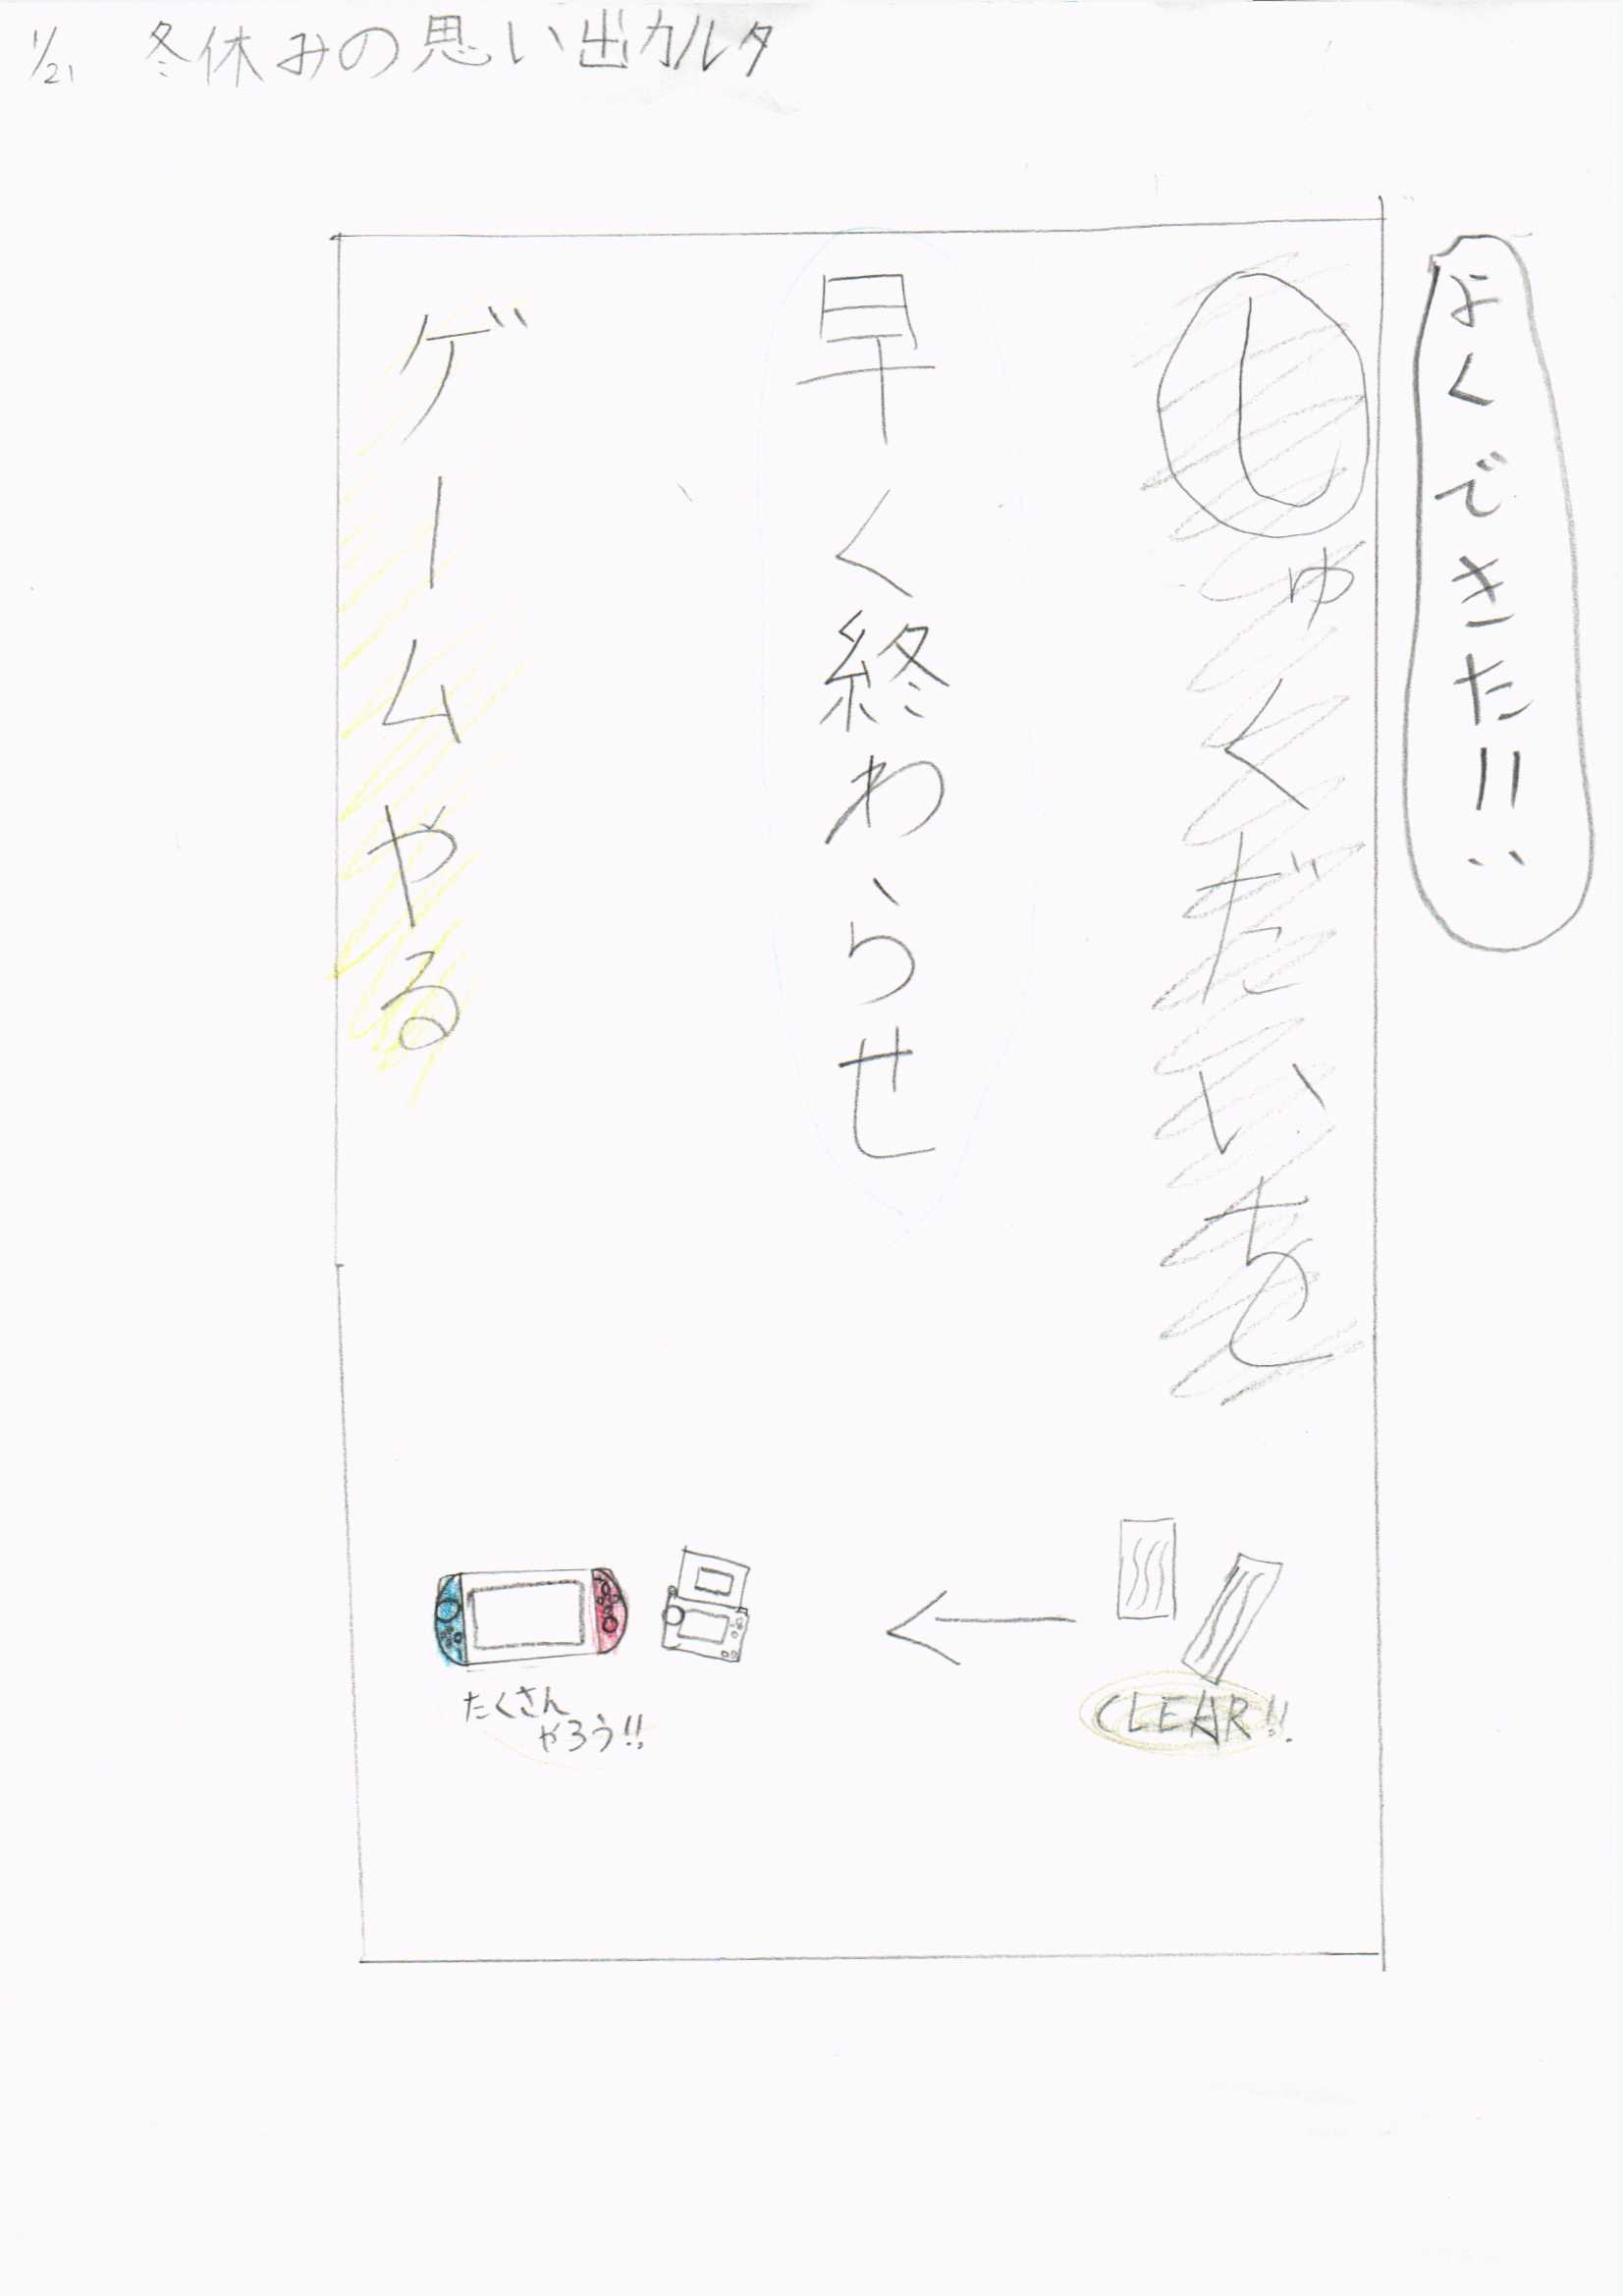 1/21 冬休みの思い出カルタ
よくできた!!
しゅくだいを
早く終わらせ
ゲームやる
CLEAR!!
たくさん
やろう!!